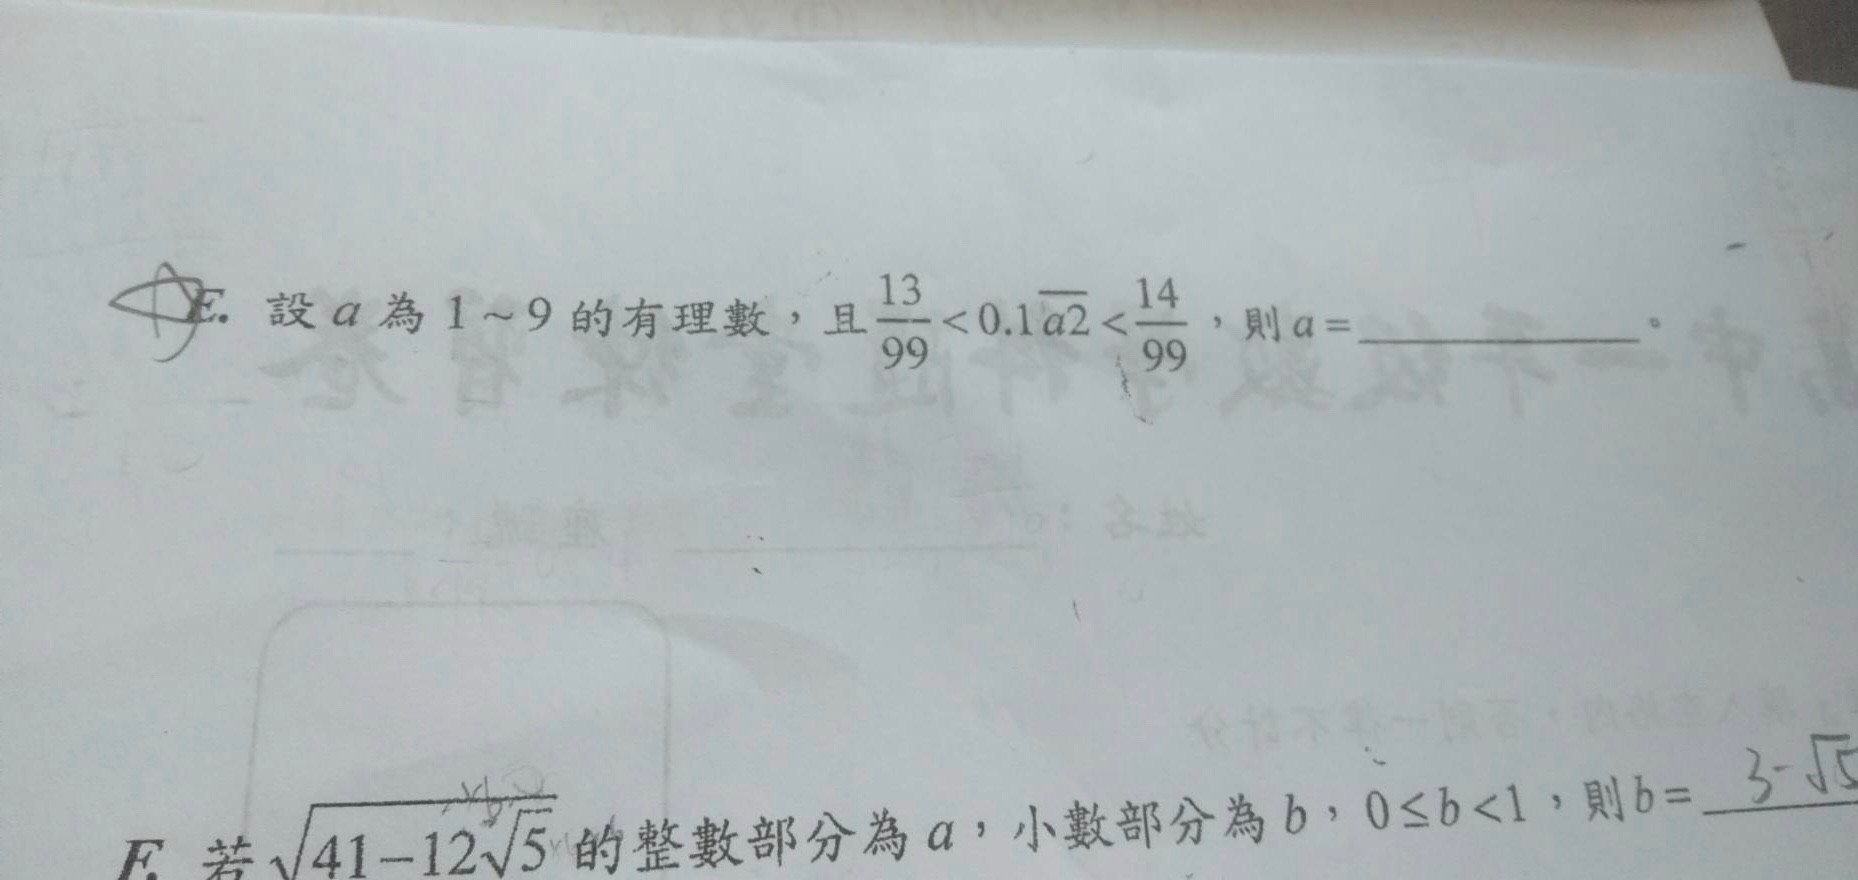 E. 設 a 為 1～9 的有理數，且 13/99 < 0.1a̅2̅ < 14/99，則 a = ________。
F. 若 √(41−12√5) 的整數部分為 a，小數部分為 b，0≤b<1，則 b = 3-√5